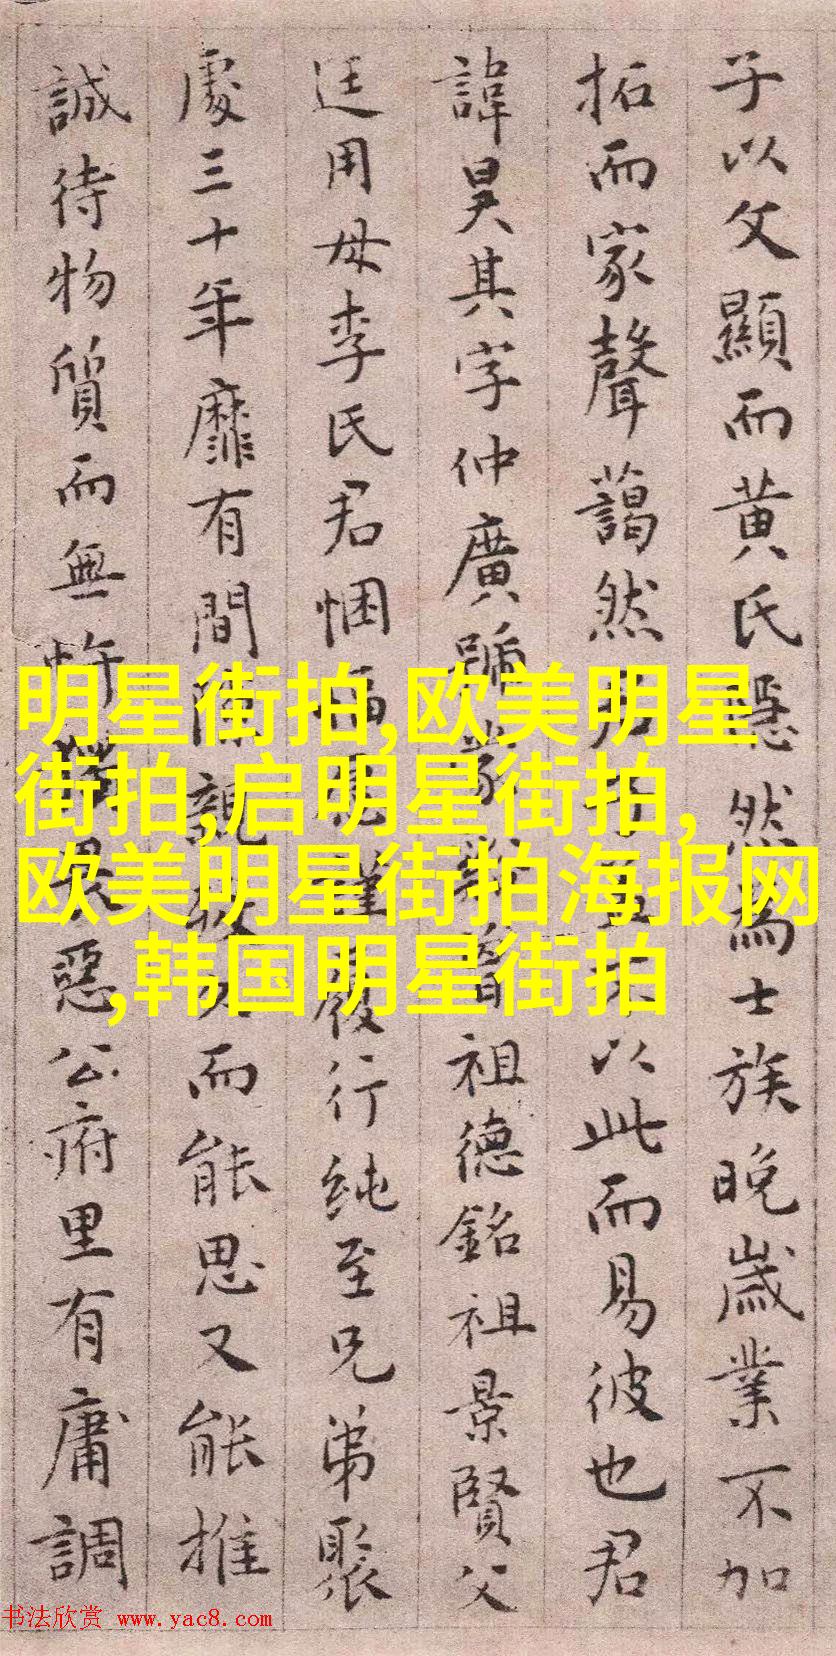 子以父顯而黄氏隱然為士族晚歲業不加
拓而家聲藹然君子不以此而易彼也君
諱昊其字仲廣號曾祖德銘祖景賢父
廷用母李氏君悃愊履行純至兄弟聚
處三十年靡有間親而能思又能推
誠待物質而無忤畏惡公府里有庸調
明星街拍,欧美明星
街拍,启明星街拍,
欧美明星街拍海报网
,韩国明星街拍
书法欣赏 www.yac8.com